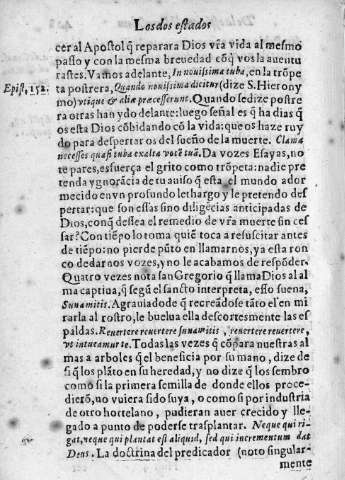 Los dos estados
cer al Apostol q̃ reparara Dios vr̃a vida al mesmo
pasto y con la mesma breuedad cõq̃ vos la auentu
rastes. Vamos adelante, In nouissima tuba, en la trõpe
Epist, 152. ta postrera, Quando nouissima dicitur (dize S. Hierony
mo) vtique & aliæ præcesserunt. Quando se dize postre
ra otras han ydo delante: luego señal es q̃ ha dias q̃
os esta Dios cõbidando cõ la vida: que os haze ruy
do para despertaros del sueño de la muerte. Clama
ne cesses quasi tuba exalta vocẽ tuã. Da vozes Esayas, no
te pares, esfuerça el grito como trõpeta: nadie pre
tenda ygnorãcia de tu auiso q̃ esta el mundo ador
mecido en vn profundo lethargo y le pretendo des
pertar: que son estas sino diligẽcias anticipadas de
Dios, con q̃ dessea el remedio de vr̃a muerte sin ces
sar? Con tiẽpo lo toma quiẽ toca a resuscitar antes
de tiẽpo: no pierde pũto en llamarnos, ya esta ron
co de darnos vozes, y no le acabamos de respõder.
Quatro vezes nota san Gregorio q̃ llama Dios al al
ma captiua, q̃ segũ el sancto interpreta, esso suena,
Sunamitis. Agrauiado de q̃ recreãdose tãto el en mi
rarla al rostro, le buelua ella descortesmente las es
paldas. Reuertere reuertere sunamitis, reuertere reuertere,
vt intueamur te. Todas las vezes q̃ cõpara nuestras al
mas a arboles q̃ el beneficia por su mano, dize de
si q̃ los plãto en su heredad, y no dize q̃ los sembro
como si la primera semilla de donde ellos proce-
dierõ, no vuiera sido suya, o como si por industria
de otro hortelano, pudieran auer crecido y lle-
gado a punto de poderse trasplantar. Neque qui ri-
gat, neque qui plantat est aliquid, sed qui incrementum dat
Deus. La doctrina del predicador (noto singular-
mente